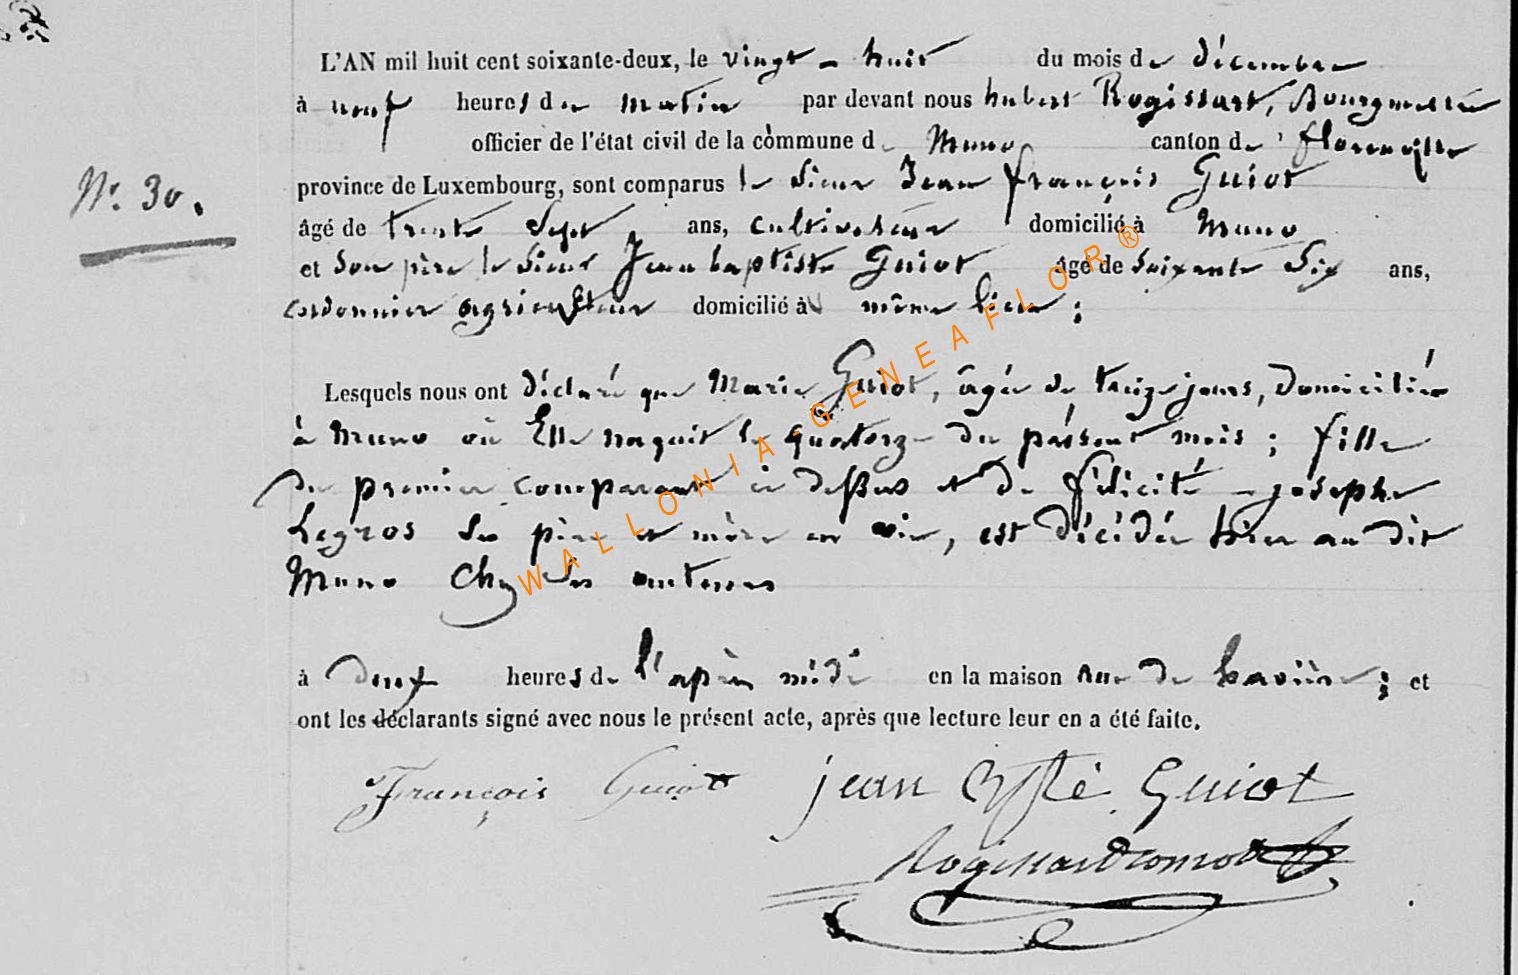 L'AN mil huit cent soixante-deux, le vingt-huit du mois de décembre
à neuf heures du matin par devant nous hubert Rogissart, Bourgmestre
officier de l'état civil de la commune de Muno canton de florenville
N° 30.
province de Luxembourg, sont comparus le Sieur Jean françois Guiot
âgé de trente Sept ans, cultivateur domicilié à Muno
et Son père le Sieur Jean baptiste Guiot âgé de Soixante Six ans,
cordonnier agriculteur domicilié à même lieu;
Lesquels nous ont déclaré que Marie Guiot, âgée de treize jours, Domiciliée
à Muno où Elle naquit le quatorze du présent mois; fille
du premier comparant ci dessus et de félicité-josephe
Legros Ses père et mère en vie, est décédée hier au dit
Muno Chez les
à deux heures de l'après midi en la maison rue de baviere; et
ont les déclarants signé avec nous le présent acte, après que lecture leur en a été faite.
François Guiot jean Bpte Guiot
Rogissart
WALLONIA-GENEAFLOR®